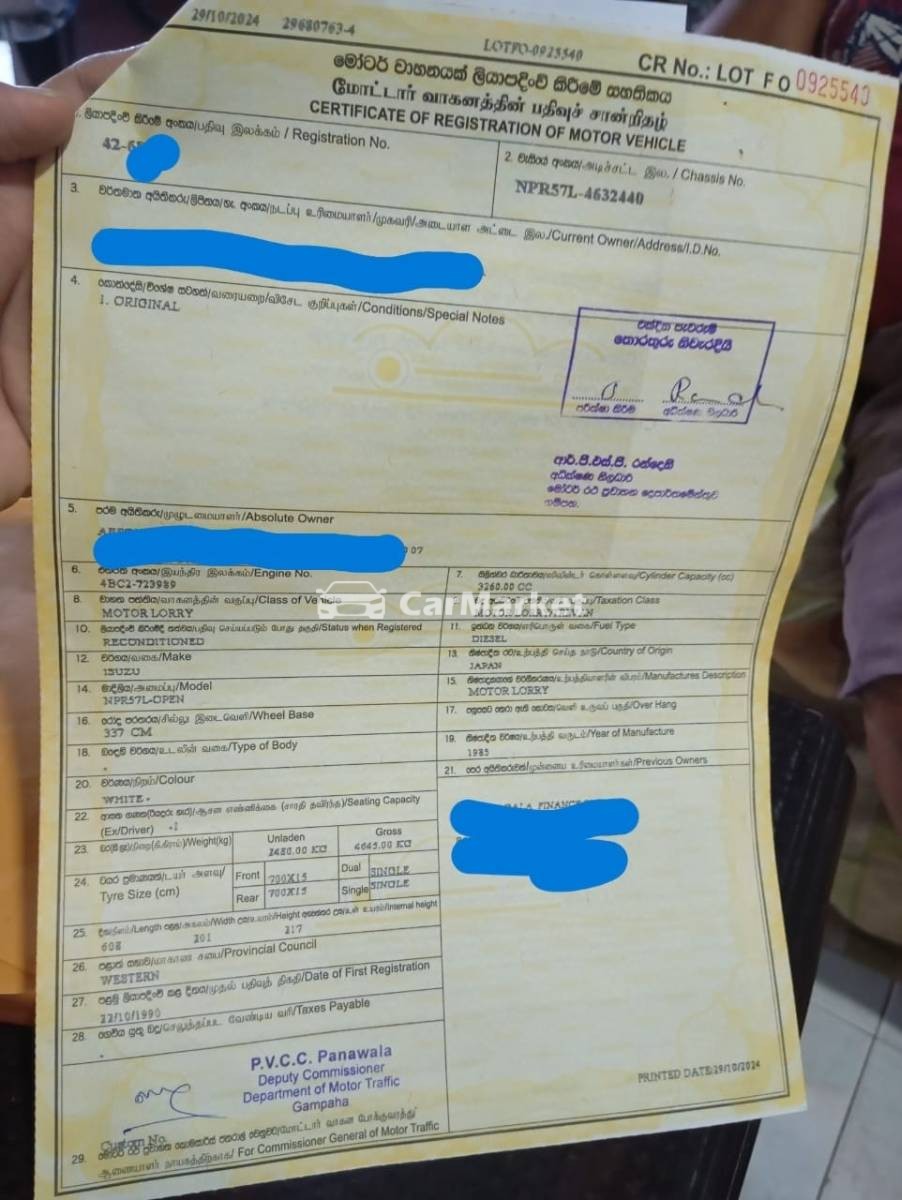 29/10/2024 29680763-4
LOTFO-0925540
CR No.: LOT F O 0925540
මෝටර් වාහනයක් ලියාපදිංචි කිරීමේ සහතිකය
மோட்டார் வாகனத்தின் பதிவுச் சான்றிதழ்
CERTIFICATE OF REGISTRATION OF MOTOR VEHICLE
ලියාපදිංචි කිරීමේ අංකය/பதிவு இலக்கம் / Registration No.
42-6
2. චැසියේ අංකය/அடிச்சட்ட இல. / Chassis No.
NPR57L-4632440
3. වර්තමාන අයිතිකරු/ලිපිනය/හැ. අංකය/நடப்பு உரிமையாளர்/முகவரி/அடையாள அட்டை இல./Current Owner/Address/I.D.No.
4. කොන්දේසි/විශේෂ සටහන්/வரையறை/விசேட குறிப்புகள்/Conditions/Special Notes
1. ORIGINAL
නිවැරදියි
පරීක්ෂා කිරීම
ආර්.පී.එස්.පී. රන්දෙනි
මෝටර් රථ ප්‍රවාහන දෙපාර්තමේන්තුව
ගම්පහ.
5. පරම අයිතිකරු/முழுஉடமையாளர்/Absolute Owner
07
6. එන්ජින් අංකය/இயந்திர இலக்கம்/Engine No.
4BC2-723989
7. Cylinder Capacity (cc)
3260.00 CC
8. වාහන පන්තිය/வாகனத்தின் வகுப்பு/Class of Vehicle
MOTOR LORRY
Taxation Class
MOTOR LORRY
10. Status when Registered
RECONDITIONED
11. ඉන්ධන වර්ගය/எரிபொருள் வகை/Fuel Type
DIESEL
12. වර්ගය/வகை/Make
ISUZU
13. Country of Origin
JAPAN
14. මාදිලිය/அமைப்பு/Model
NPR57L-OPEN
15. Manufactures Description
MOTOR LORRY
16. රෝද පරතරය/சில்லு இடைவெளி/Wheel Base
337 CM
17. Over Hang
18. බඳෙහි වර්ගය/உடலின் வகை/Type of Body
.
19. නිෂ්පාදිත වර්ෂය/உற்பத்தி வருடம்/Year of Manufacture
1985
20. වර්ණය/நிறம்/Colour
WHITE .
21. පෙර අයිතිකරුවන්/முன்னைய உரிமையாளர்கள்/Previous Owners
ALA FINANCE
22. Seating Capacity
(Ex/Driver) 1
23. Weight(kg)
Unladen
2480.00 KG
Gross
4645.00 KG
24. ටයර් ප්‍රමාණය/டயர் அளவு/
Tyre Size (cm)
Front 700X15 Dual SINGLE
Rear 700X15 Single SINGLE
25. Length Width Height internal height
608 201 217
26. පළාත් සභාව/மாகாண சபை/Provincial Council
WESTERN
27. පළමු ලියාපදිංචි කළ දිනය/முதல் பதிவுத் திகதி/Date of First Registration
22/10/1990
28. ගෙවිය යුතු බදු/செலுத்தப்பட வேண்டிய வரி/Taxes Payable
.
P.V.C.C. Panawala
Deputy Commissioner
Department of Motor Traffic
Gampaha
PRINTED DATE:29/10/2024
Custom No.
29.
ஆணையாளர் நாயகத்திற்காக/ For Commissioner General of Motor Traffic
CarMarket